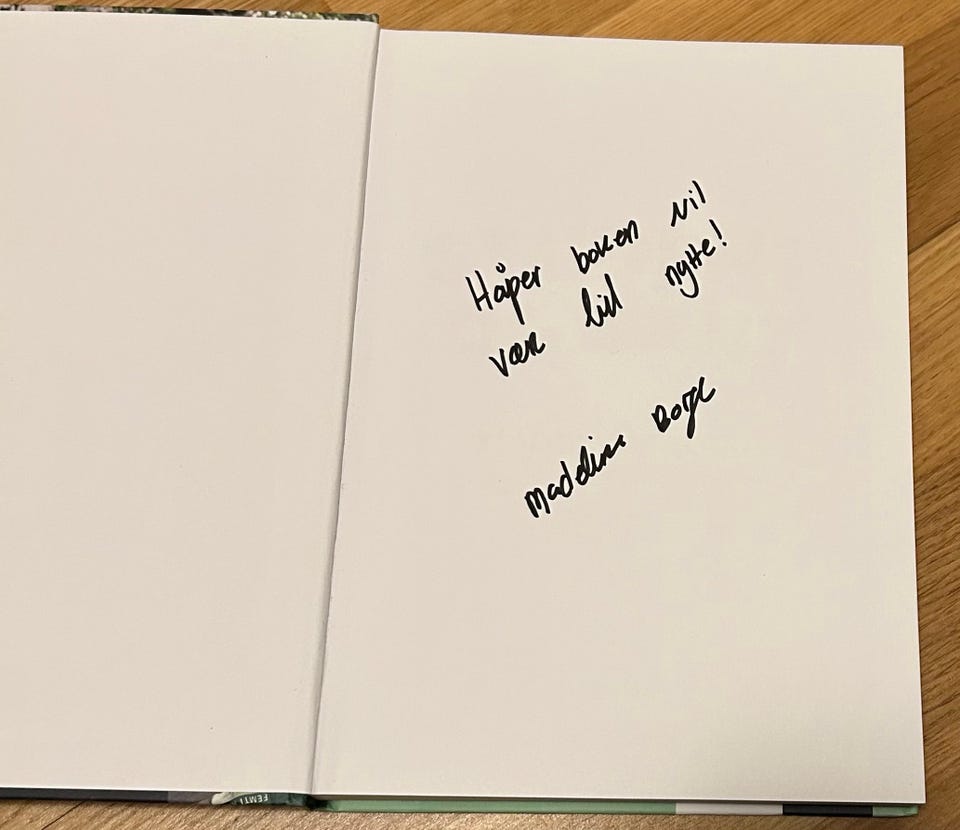 Håper boken vil
være til nytte!
Madeline Borge
FEMTI